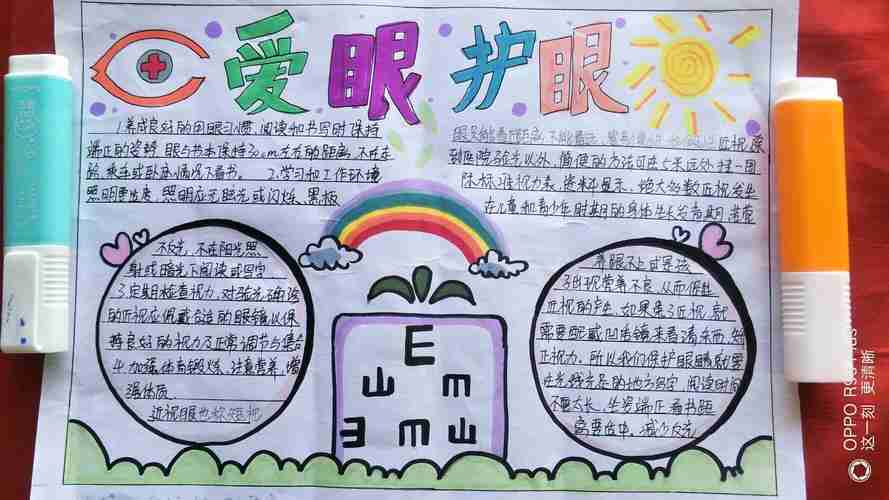 爱眼护眼
1.养成良好的用眼习惯,阅读和书写时保持
端正的姿势 眼与书本保持30cm左右的距离,不在走
路、乘车或卧床情况下看书。 2.学习和工作环境
照明要适度,照明应无眩光或闪烁、黑板
不反光,不在阳光照
射或暗光下阅读或写字
3.定期检查视力,对验光确诊
的近视应佩戴合适的眼镜以保
持良好的视力及正常调节与集合
4.加强体育锻炼、注意营养、增
强体质.
近视眼也称短视
近视,除
到医院验光以外,简便的方法可在5米远处挂一国
际标准视力表,资料显示,绝大多数近视发生
在儿童和青少年时期的身体生长发育期,
养眼不足或是强
出现营养不良,从而促进
近视的产生,如果患了近视,就
需要配戴凹透镜来看清东西,矫
正视力,所以我们保护眼睛就要
在光线充足的地方写字,阅读时间
不要太长,坐姿端正看书距
离要适中,减少反光
E
OPPO
这一刻 更清晰